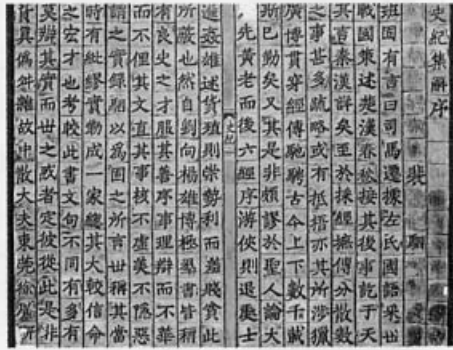 史紀集解序
裴 駰
班固有言曰司馬遷據左氏國語采世
戰國策述楚漢春秋接其後事訖于天
其言秦漢詳矣至於採經摭傳分散數
之事甚多疏略或有抵捂亦其所涉獵
廣博貫穿經傳馳騁古今上下數千載
斯已勤矣又其是非頗謬於聖人論大
先黃老而後六經序游俠則退處士
進姦雄述貨殖則崇勢利而羞賤貧此
所蔽也然自劉向楊雄博極羣書皆稱
有良史之才服其善序事理辯而不華
而不俚其文直其事核不虛美不隱惡
謂之實錄駰以爲固之所言世稱其當
時有紕繆實勒成一家總其大較信命
之宏才也考較此書文句不同有多有
莫辯其實而世之惑者定彼從此是非
貿真偽舛雜故中散大夫東莞徐廣研